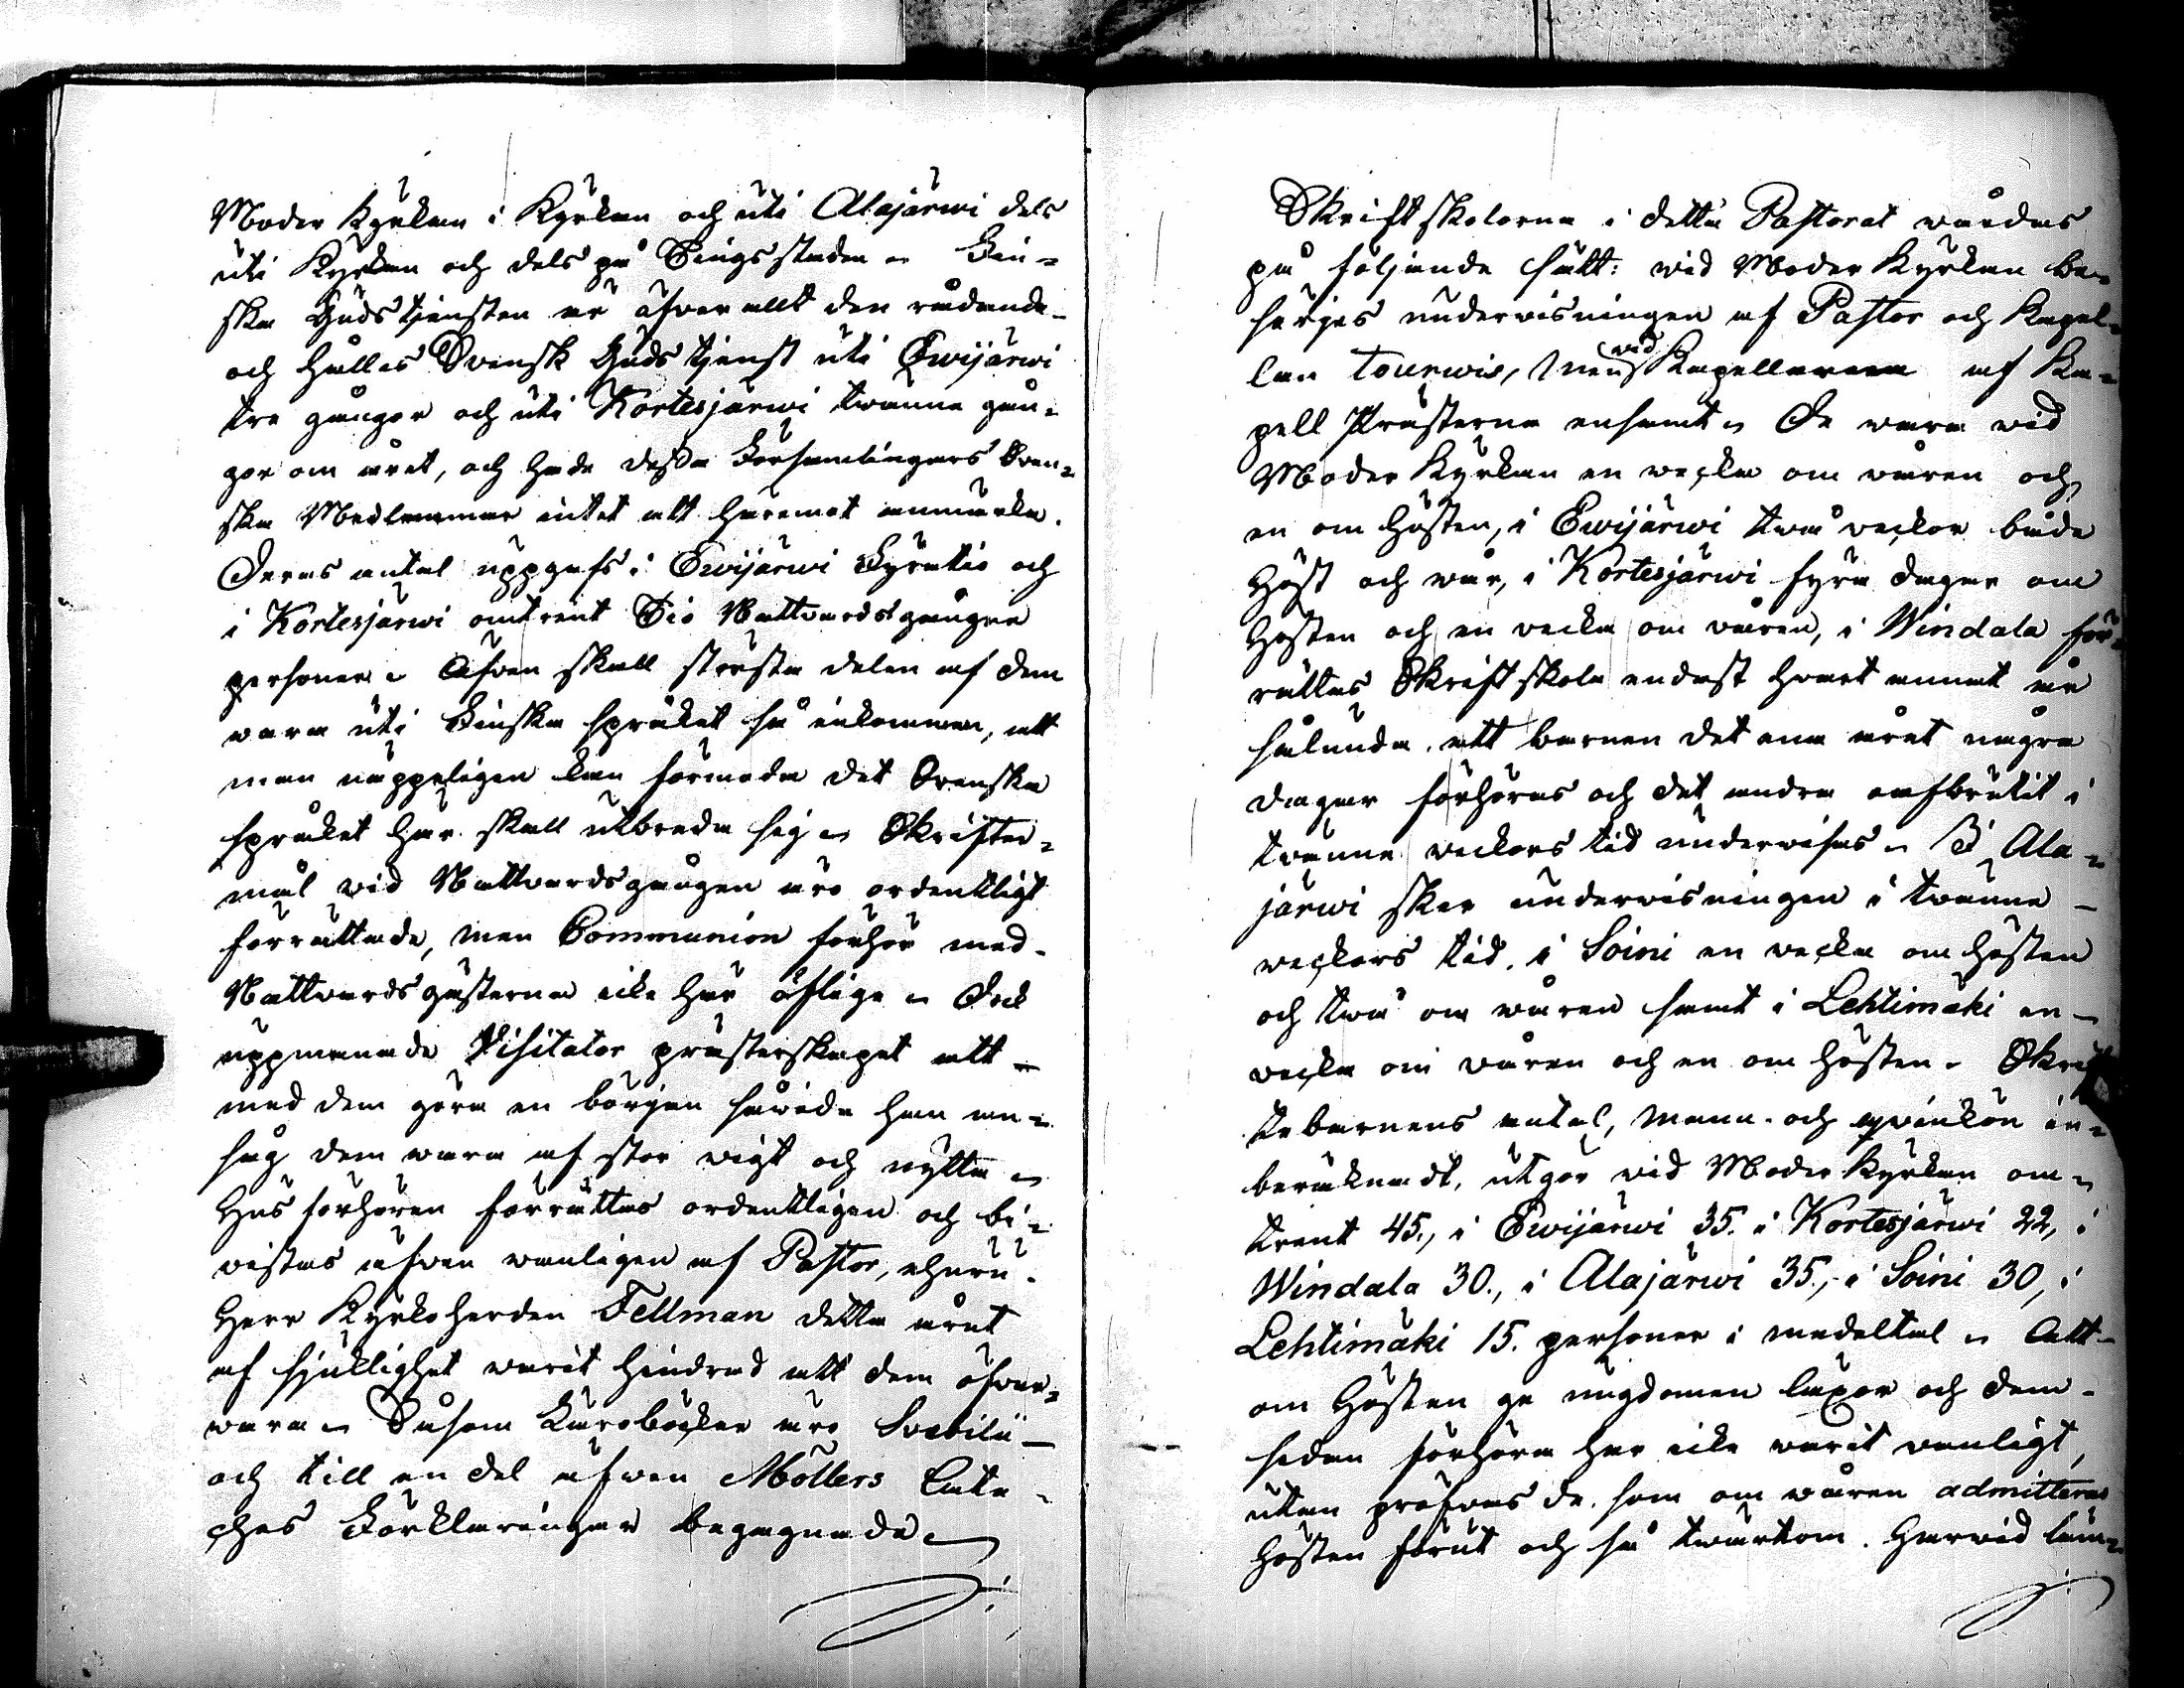 Moder Kyrkan i Kyrkan och uti Alajärwi dels
uti Kyrkan och dels på Tingsstaden. Fin-
ska Gudstjensten är öfverallt den rådande
och hålles Svensk Gudstjenst uti Ewijärwi
tre gånger och uti Kortesjärwi twänne gån-
gor om året, och hade dessa Församlingars Sven-
ska Medlemmar intet att häremot anmärka.
Deras antal uppgafs i Ewijärwi Fyratio och
i Kortesjärwi omtrent Tio Nattvardsgångna
personer. Äfven skall största delen af dem
wara uti Finska språket så inkommen, att
man näppeligen kan förmoda det Svenska
språket här skall utbreda sig. Skrifter-
mål vid Nattvardsgången äro ordentligt
förrättade, men Communion förhör med
Nattvardsgästerna icke här öflige. Dock
uppmanade Visitator presterskapet att
med dem göra en början såvida han an-
såg dem wara af stor vigt och nytta.
Husförhören förrättas ordentligen och bi-
vistas äfven wanligen af Pastor, ehuru
Herr Kyrkoherden Fellman detta året
af sjuklighet varit hindrad att dem öfver-
wara. Såsom Läroböcker äro Svebilii
och till en del äfwen Möllers Cate-
ches Förklaringar begagnade.
Skriftskolorna i detta Pastorat wårdas
på följande sätt: wid Moder Kyrkan be-
sörjes underwisningen af Pastor och Kapel-
lan tourwis, men wid Kapellerna af Ka-
pell Presterna ensamt. De wara wid
Moder Kyrkan en wecka om wåren och
en om Hösten, i Ewijärwi twå veckor både
Höst och wår, i Kortesjärwi fyra dagar om
Hösten och en vecka om våren, i Windala för-
rättas Skriftskola endast hvart annat år
sålunda, att barnen det ena året några
dagar förhöras och det andra oafbrutit i
tvänne veckors tid underwisas. I Ala-
järwi sker underwisningen i twänne
weckors tid, i Soini en wecka om hösten
och twå om wåren samt i Lehtimäki en
wecka om våren och en om hösten. Skrif-
tebarnens antal, mann- och qvinkön in-
beräknadt, utgör vid Moder Kyrkan om-
trent 45., i Ewijärwi 35. i Kortesjärwi 22, i
Windala 30., i Alajärwi 35., i Soini 30, i
Lehtimäki 15. personer i medeltal. Att
om Hösten ge ungdomen läxor och dem
sedan förhöra har icke warit wanligt,
utan pröfvas de som om våren admitteras
Hösten förut och så twärtom. Härvid läm-